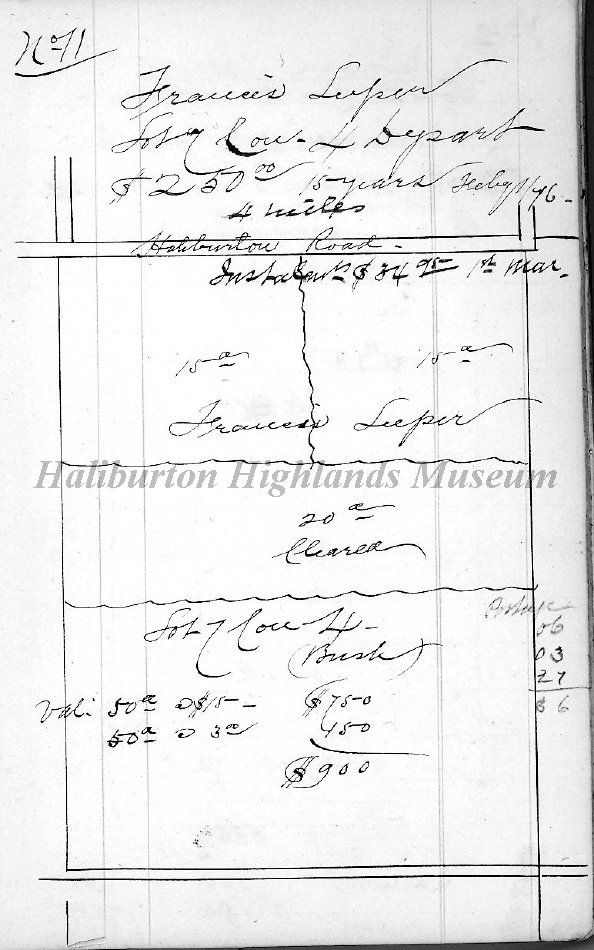 No 11
Francis Leeper
Lot 7 Con- 4 Dysart
$ 250 00 15 years Feby 1/76-
4 miles
Haliburton Road-
Instalmts $ 34 95 1st Mar.
15 a 15 a
Francis Leeper
Haliburton Highlands Museum
20 a
Cleared
Lot 7 Con 4-
(Bush)
Postage
06
03
27
36
Val: 50 a @ $15- $750
50 a @ 3 a 150
$900